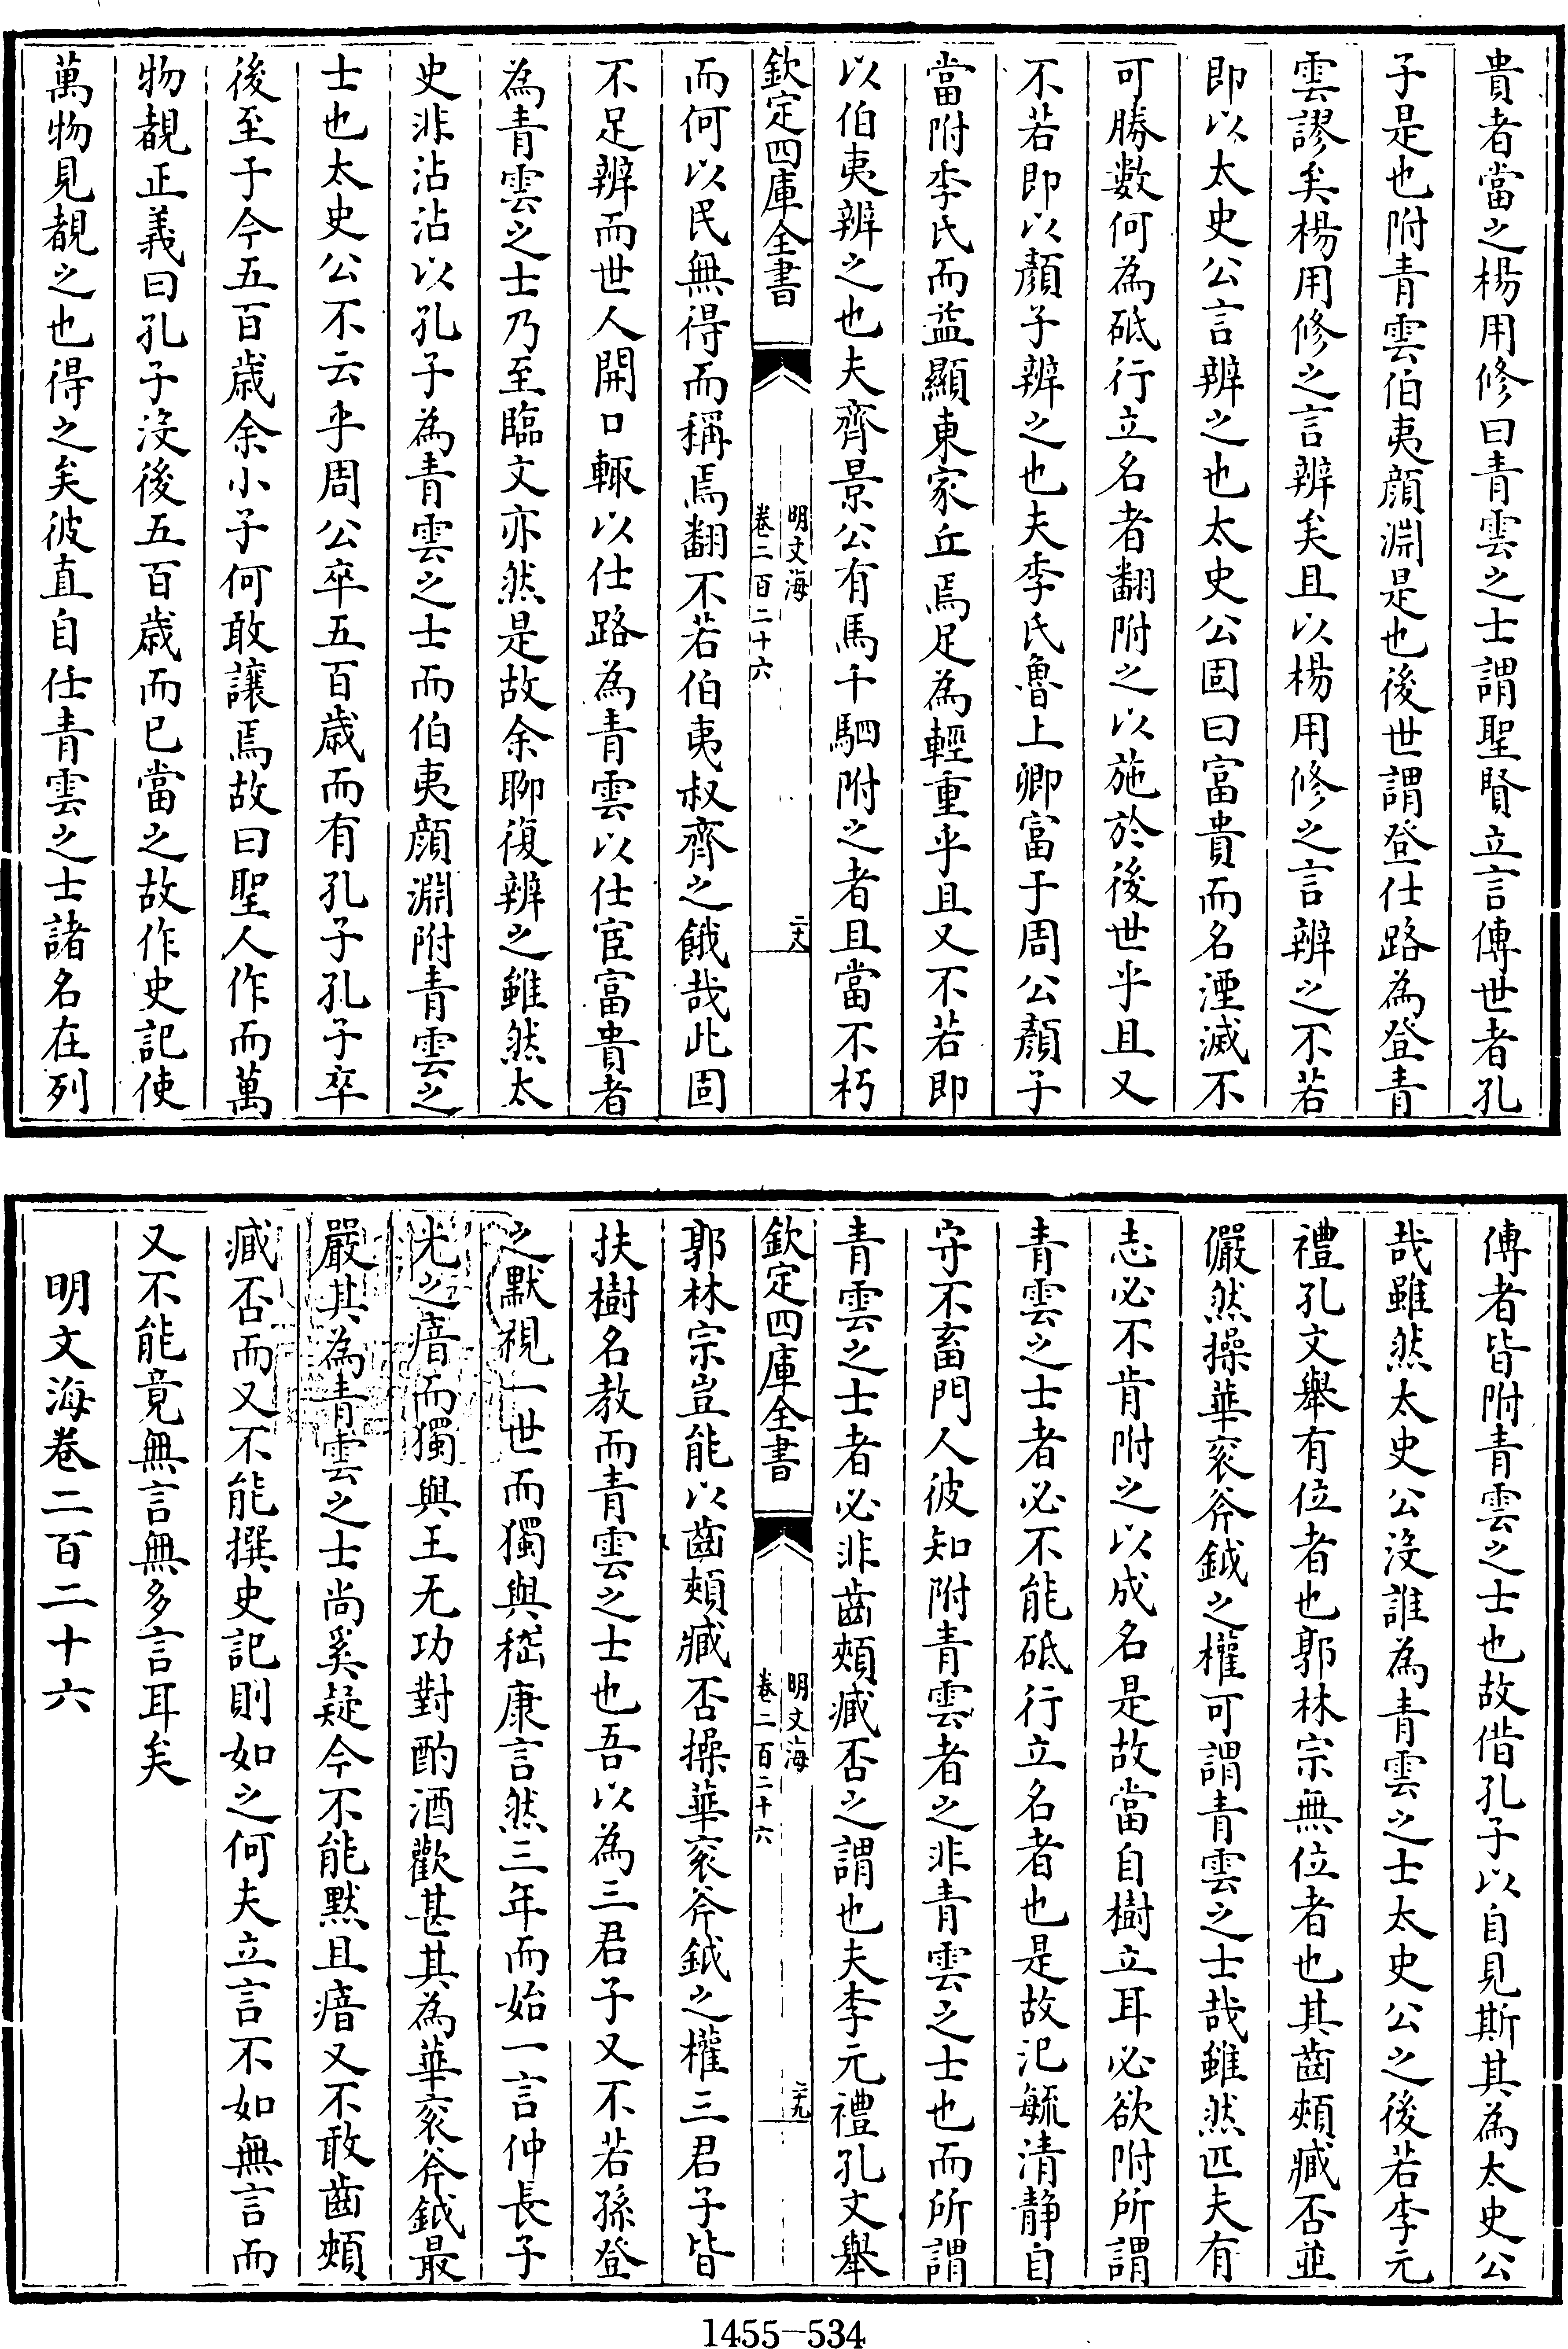 貴者當之楊用修曰青雲之士謂聖賢立言傳世者孔
子是也附青雲伯夷顔淵是也後世謂登仕路為登青
雲謬矣楊用修之言辨矣且以楊用修之言辨之不若
即以太史公言辨之也太史公固曰富貴而名湮滅不
可勝數何為砥行立名者翻附之以施於後世乎且又
不若即以顔子辨之也夫季氏魯上卿富于周公顔子
當附季氏而益顯東家丘焉足為輕重乎且又不若即
以伯夷辨之也夫齊景公有馬千駟附之者且當不朽
欽定四庫全書
明文海
卷二百二十六
二十八
而何以民無得而稱焉翻不若伯夷叔齊之餓哉此固
不足辨而世人開口輒以仕路為青雲以仕宦富貴者
為青雲之士乃至臨文亦然是故余聊復辨之雖然太
史非沾沾以孔子為青雲之士而伯夷顔淵附青雲之
士也太史公不云乎周公卒五百歲而有孔子孔子卒
後至于今五百歲余小子何敢讓焉故曰聖人作而萬
物覩正義曰孔子沒後五百歲而已當之故作史記使
萬物見覩之也得之矣彼直自任青雲之士諸名在列
傳者皆附青雲之士也故借孔子以自見斯其為太史公
哉雖然太史公沒誰為青雲之士太史公之後若李元
禮孔文舉有位者也郭林宗無位者也其齒頰臧否並
儼然操華衮斧鉞之權可謂青雲之士哉雖然匹夫有
志必不肯附之以成名是故當自樹立耳必欲附所謂
青雲之士者必不能砥行立名者也是故汜毓清静自
守不畜門人彼知附青雲者之非青雲之士也而所謂
青雲之士者必非齒頰臧否之謂也夫李元禮孔文舉
欽定四庫全書
明文海
卷二百二十六
二十九
郭林宗豈能以齒頰臧否操華衮斧鉞之權三君子皆
扶樹名教而青雲之士也吾以為三君子又不若孫登
之默視一世而獨與嵇康言然三年而始一言仲長子
光之瘖而獨與王无功對酌酒歡甚其為華衮斧鉞最
嚴其為青雲之士尚奚疑今不能默且瘖又不敢齒頰
臧否而又不能撰史記則如之何夫立言不如無言而
又不能竟無言無多言耳矣
明文海卷二百二十六
1455-534